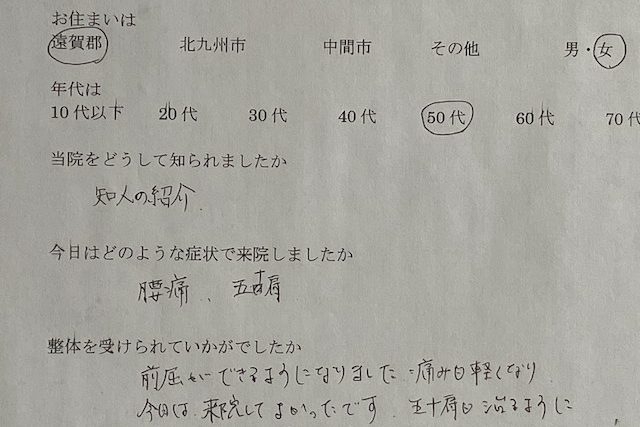 お住まいは
遠賀郡 北九州市 中間市 その他 男・女
年代は
10代以下 20代 30代 40代 50代 60代 70代
当院をどうして知られましたか
知人の紹介.
今日はどのような症状で来院しましたか
腰痛、五十肩
整体を受けられていかがでしたか
前屈ができるようになりました 痛みも軽くなり
今日は来院してよかったです 五十肩も治るように